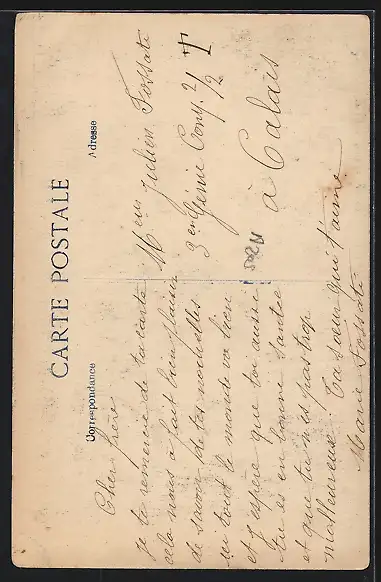 CARTE POSTALE
Correspondance
Adresse
Cher frère
je te remercie de ta carte
cela nous à fait bien plaisir
de savoir de tes nouvelles
ici tout le monde va bien
et j'espère que toi aussi
tu es en bonne santée
et que tu n'es pas trop
malheureux. Ta sœur qui t'aime
Marie Fossate
Mr Julien Fossate
3 en Génie Cony. 21/2 T
à Calais